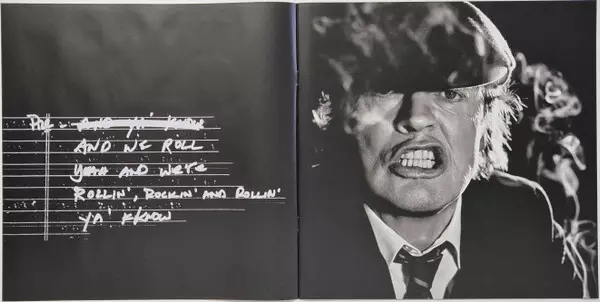 PRE - AND YA' KNOW
AND WE ROLL
YEAH AND WE'RE
ROLLIN', ROCKIN' AND ROLLIN'
YA' KNOW